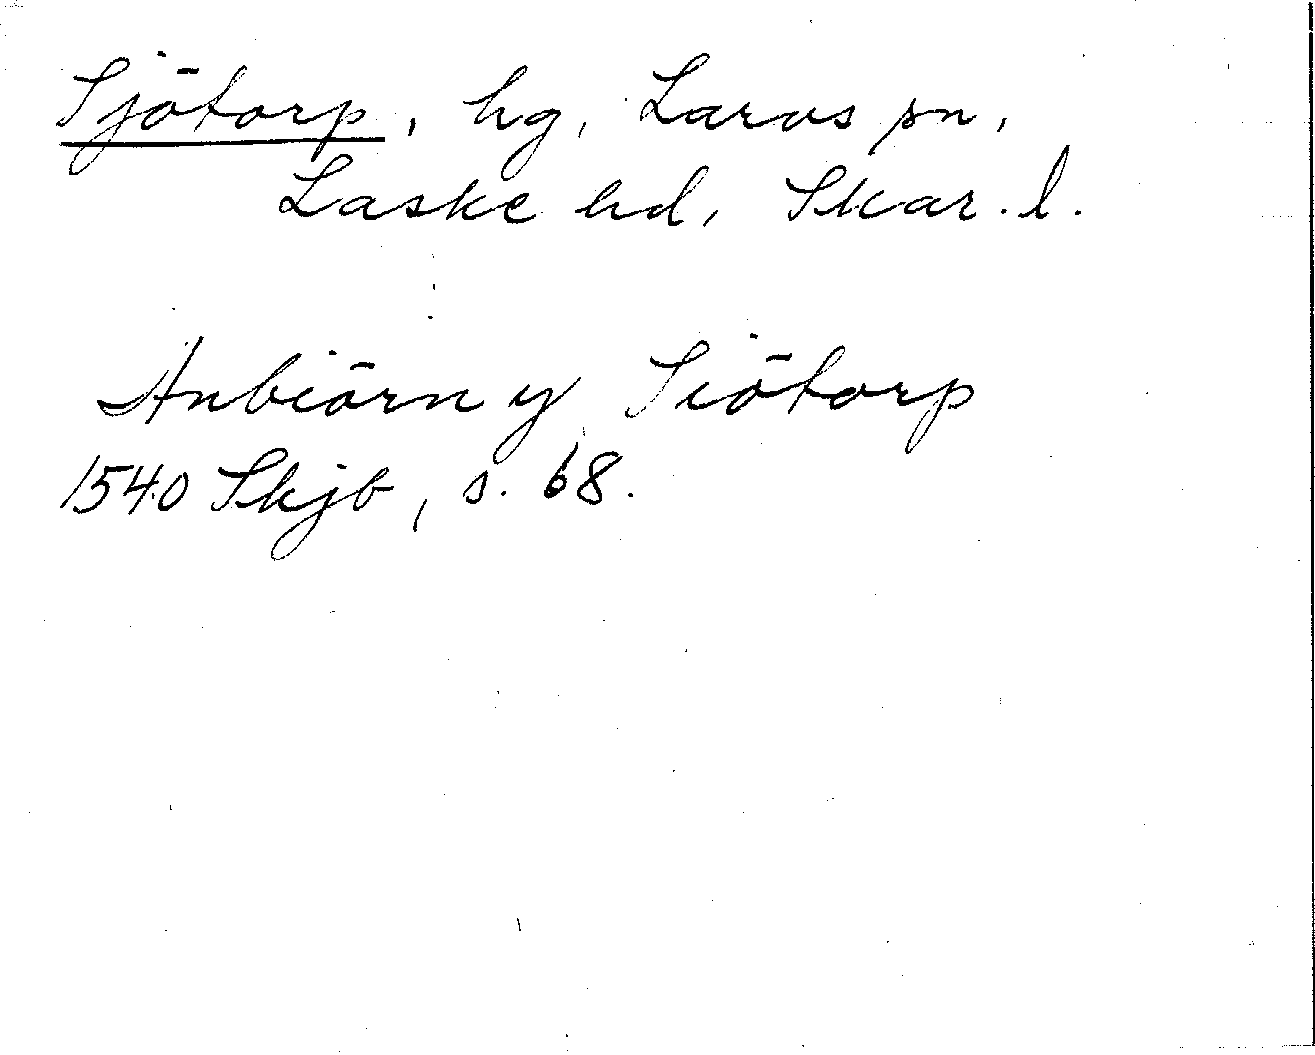 Sjötorp, hg, Larvs sn,
Laske hd, Skar. l.
Anbiörn y Siötorp
1540 Skjb, s. 68.